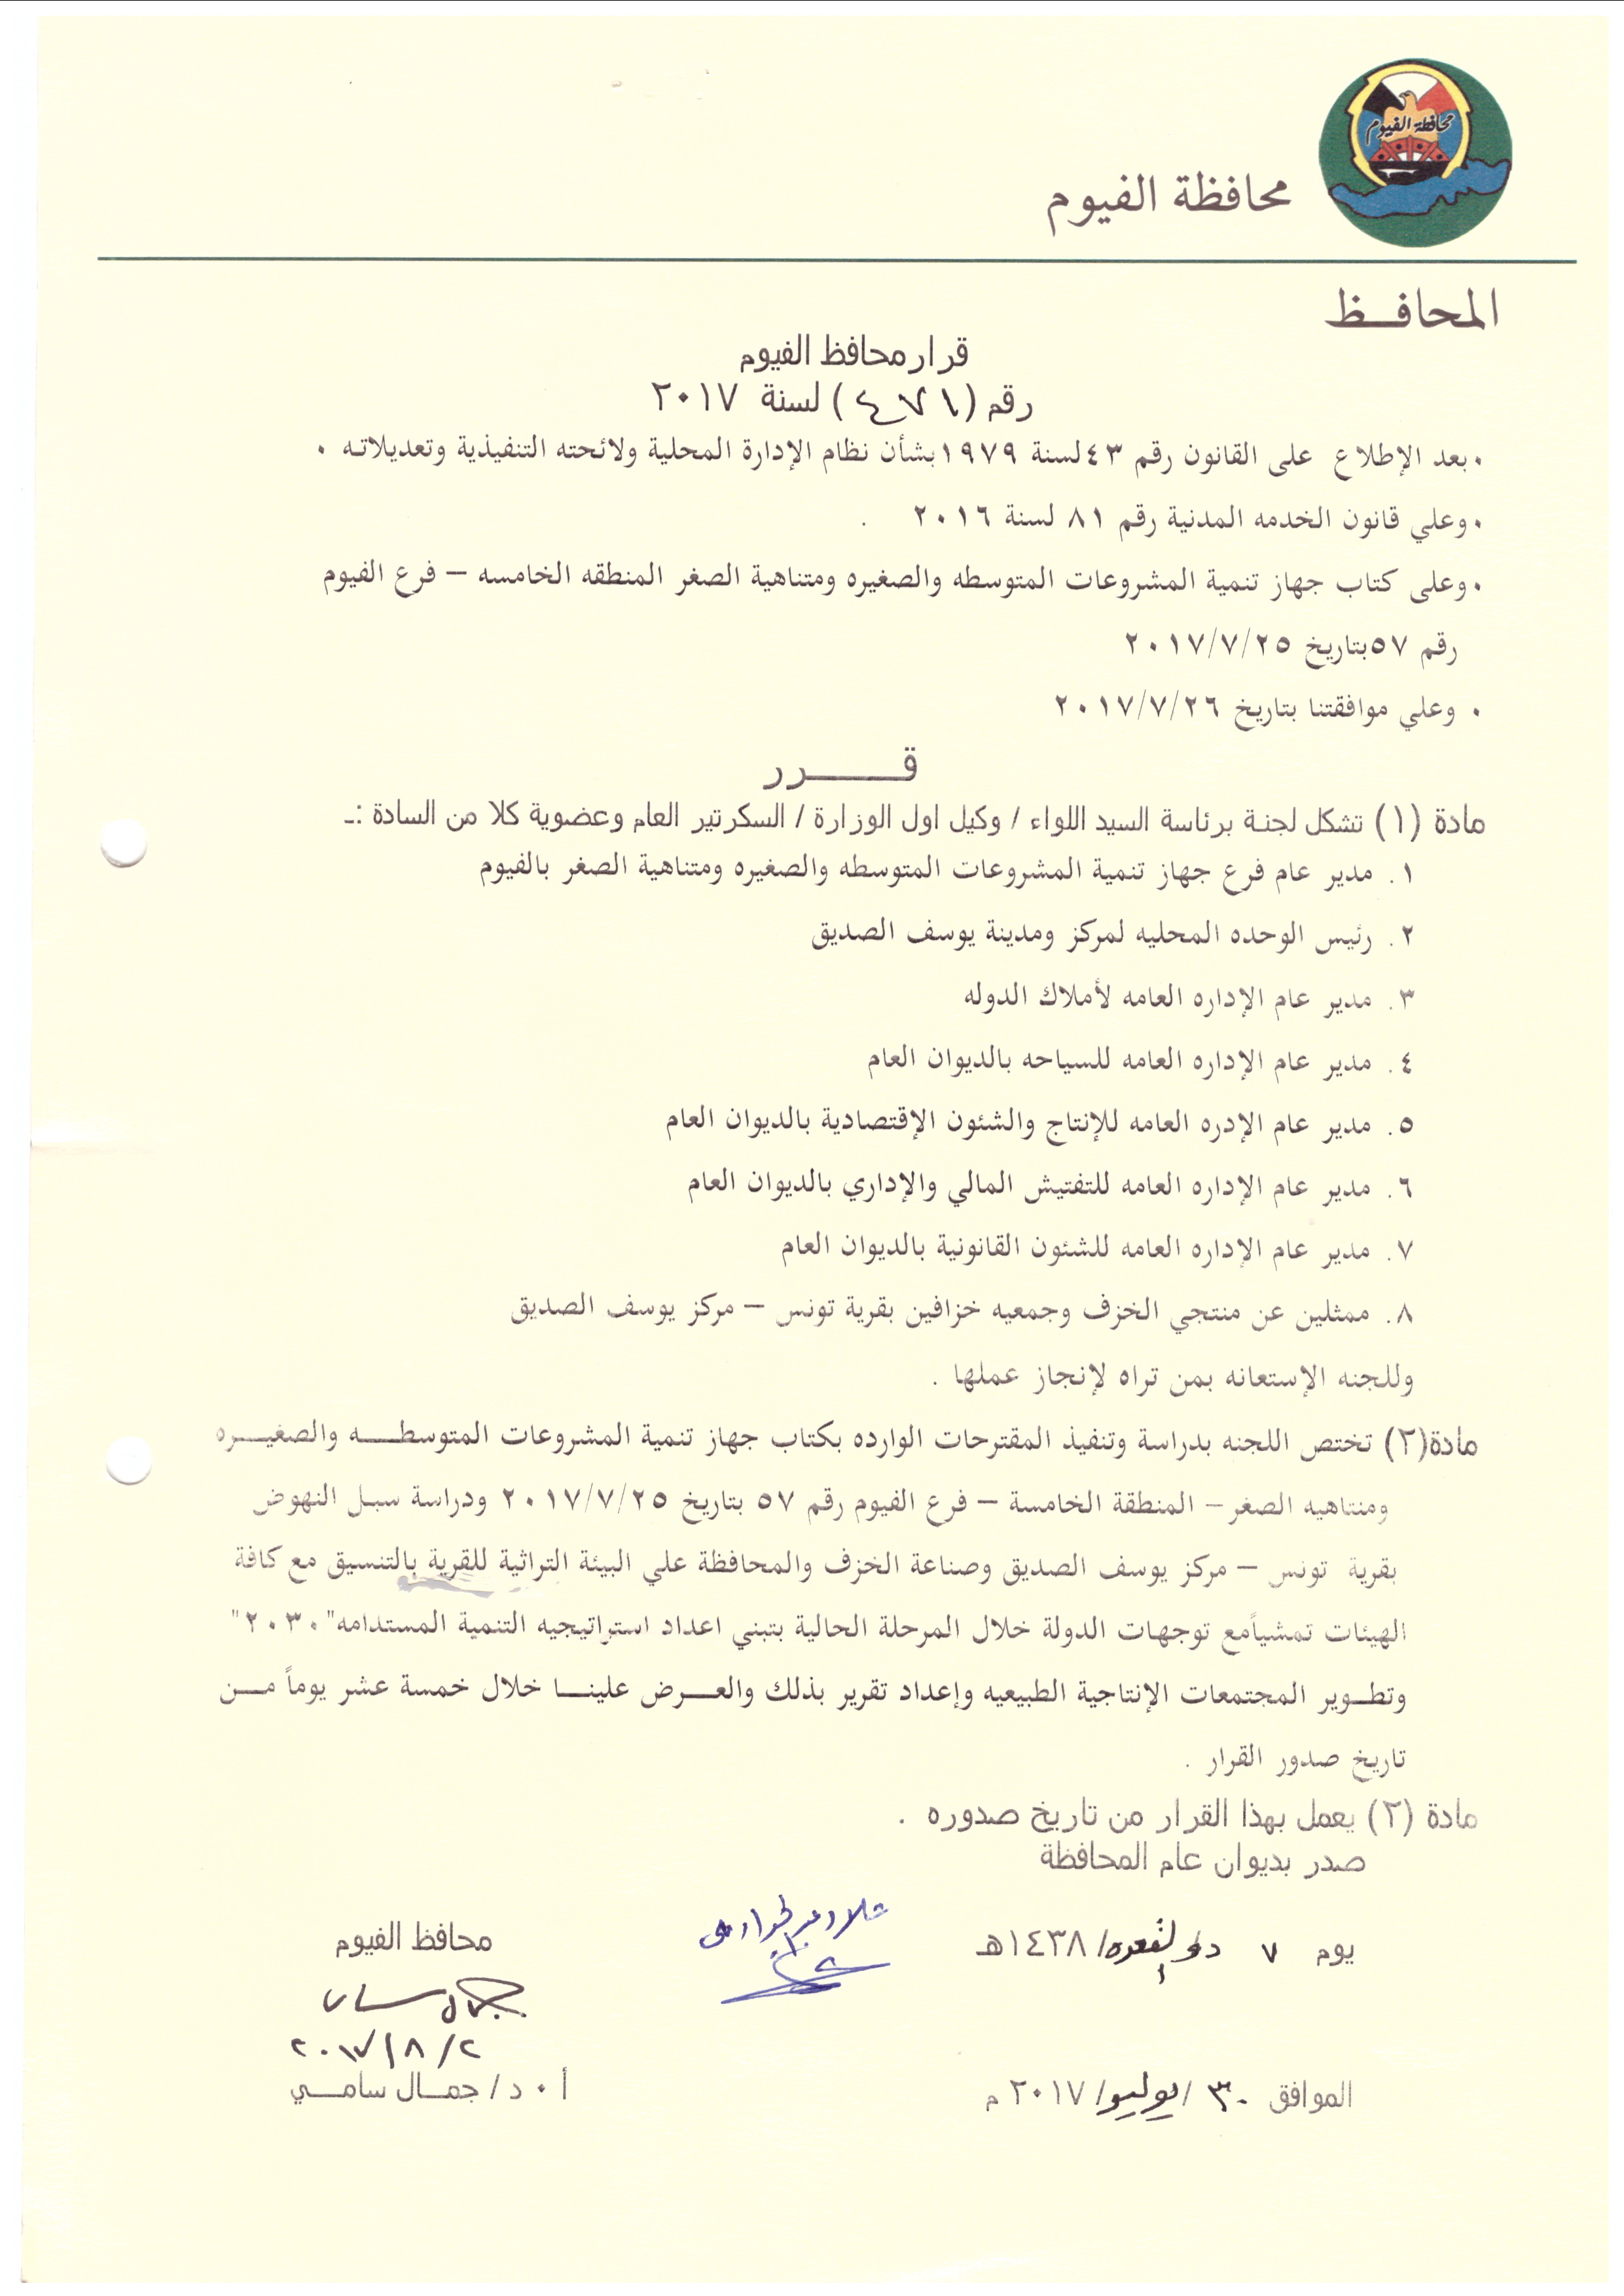 محافظة الفيوم
محافظة الفيوم
المحافـــظ
قرار محافظ الفيوم
رقم (٤٧١) لسنة ٢٠١٧
• بعد الإطلاع على القانون رقم ٤٣ لسنة ١٩٧٩ بشأن نظام الإدارة المحلية ولائحته التنفيذية وتعديلاته •
• وعلي قانون الخدمه المدنية رقم ٨١ لسنة ٢٠١٦ .
• وعلى كتاب جهاز تنمية المشروعات المتوسطه والصغيره ومتناهية الصغر المنطقه الخامسه – فرع الفيوم
رقم ٥٧ بتاريخ ٢٠١٧/٧/٢٥
• وعلي موافقتنا بتاريخ ٢٠١٧/٧/٢٦
قـــــــرر
مادة (١) تشكل لجنة برئاسة السيد اللواء / وكيل اول الوزارة / السكرتير العام وعضوية كلا من السادة :ـ
١. مدير عام فرع جهاز تنمية المشروعات المتوسطه والصغيره ومتناهية الصغر بالفيوم
٢. رئيس الوحده المحليه لمركز ومدينة يوسف الصديق
٣. مدير عام الإداره العامه لأملاك الدوله
٤. مدير عام الإداره العامه للسياحه بالديوان العام
٥. مدير عام الإدره العامه للإنتاج والشئون الإقتصادية بالديوان العام
٦. مدير عام الإداره العامه للتفتيش المالي والإداري بالديوان العام
٧. مدير عام الإداره العامه للشئون القانونية بالديوان العام
٨. ممثلين عن منتجي الخزف وجمعيه خزافين بقرية تونس – مركز يوسف الصديق
وللجنه الإستعانه بمن تراه لإنجاز عملها .
مادة(٢) تختص اللجنه بدراسة وتنفيذ المقترحات الوارده بكتاب جهاز تنمية المشروعات المتوسطــــه والصغيــــره
ومنتاهيه الصغر – المنطقة الخامسة – فرع الفيوم رقم ٥٧ بتاريخ ٢٠١٧/٧/٢٥ ودراسة سبل النهوض
بقرية تونس – مركز يوسف الصديق وصناعة الخزف والمحافظة علي البيئة التراثية للقرية بالتنسيق مع كافة
الهيئات تمشياًمع توجهات الدولة خلال المرحلة الحالية بتبني اعداد استراتيجيه التنمية المستدامه"٢٠٣٠"
وتطـــوير المجتمعات الإنتاجية الطبيعيه وإعداد تقرير بذلك والعـــرض علينـــا خلال خمسة عشر يوماً مـــن
تاريخ صدور القرار .
مادة (٣) يعمل بهذا القرار من تاريخ صدوره .
صدر بديوان عام المحافظة
يوم ٧ ذو القعده/ ١٤٣٨هـ
محافظ الفيوم
٢٠١٧/٨/٢
الموافق ٣٠ /يوليو/ ٢٠١٧ م
أ ٠ د/ جمـــال سامـــي